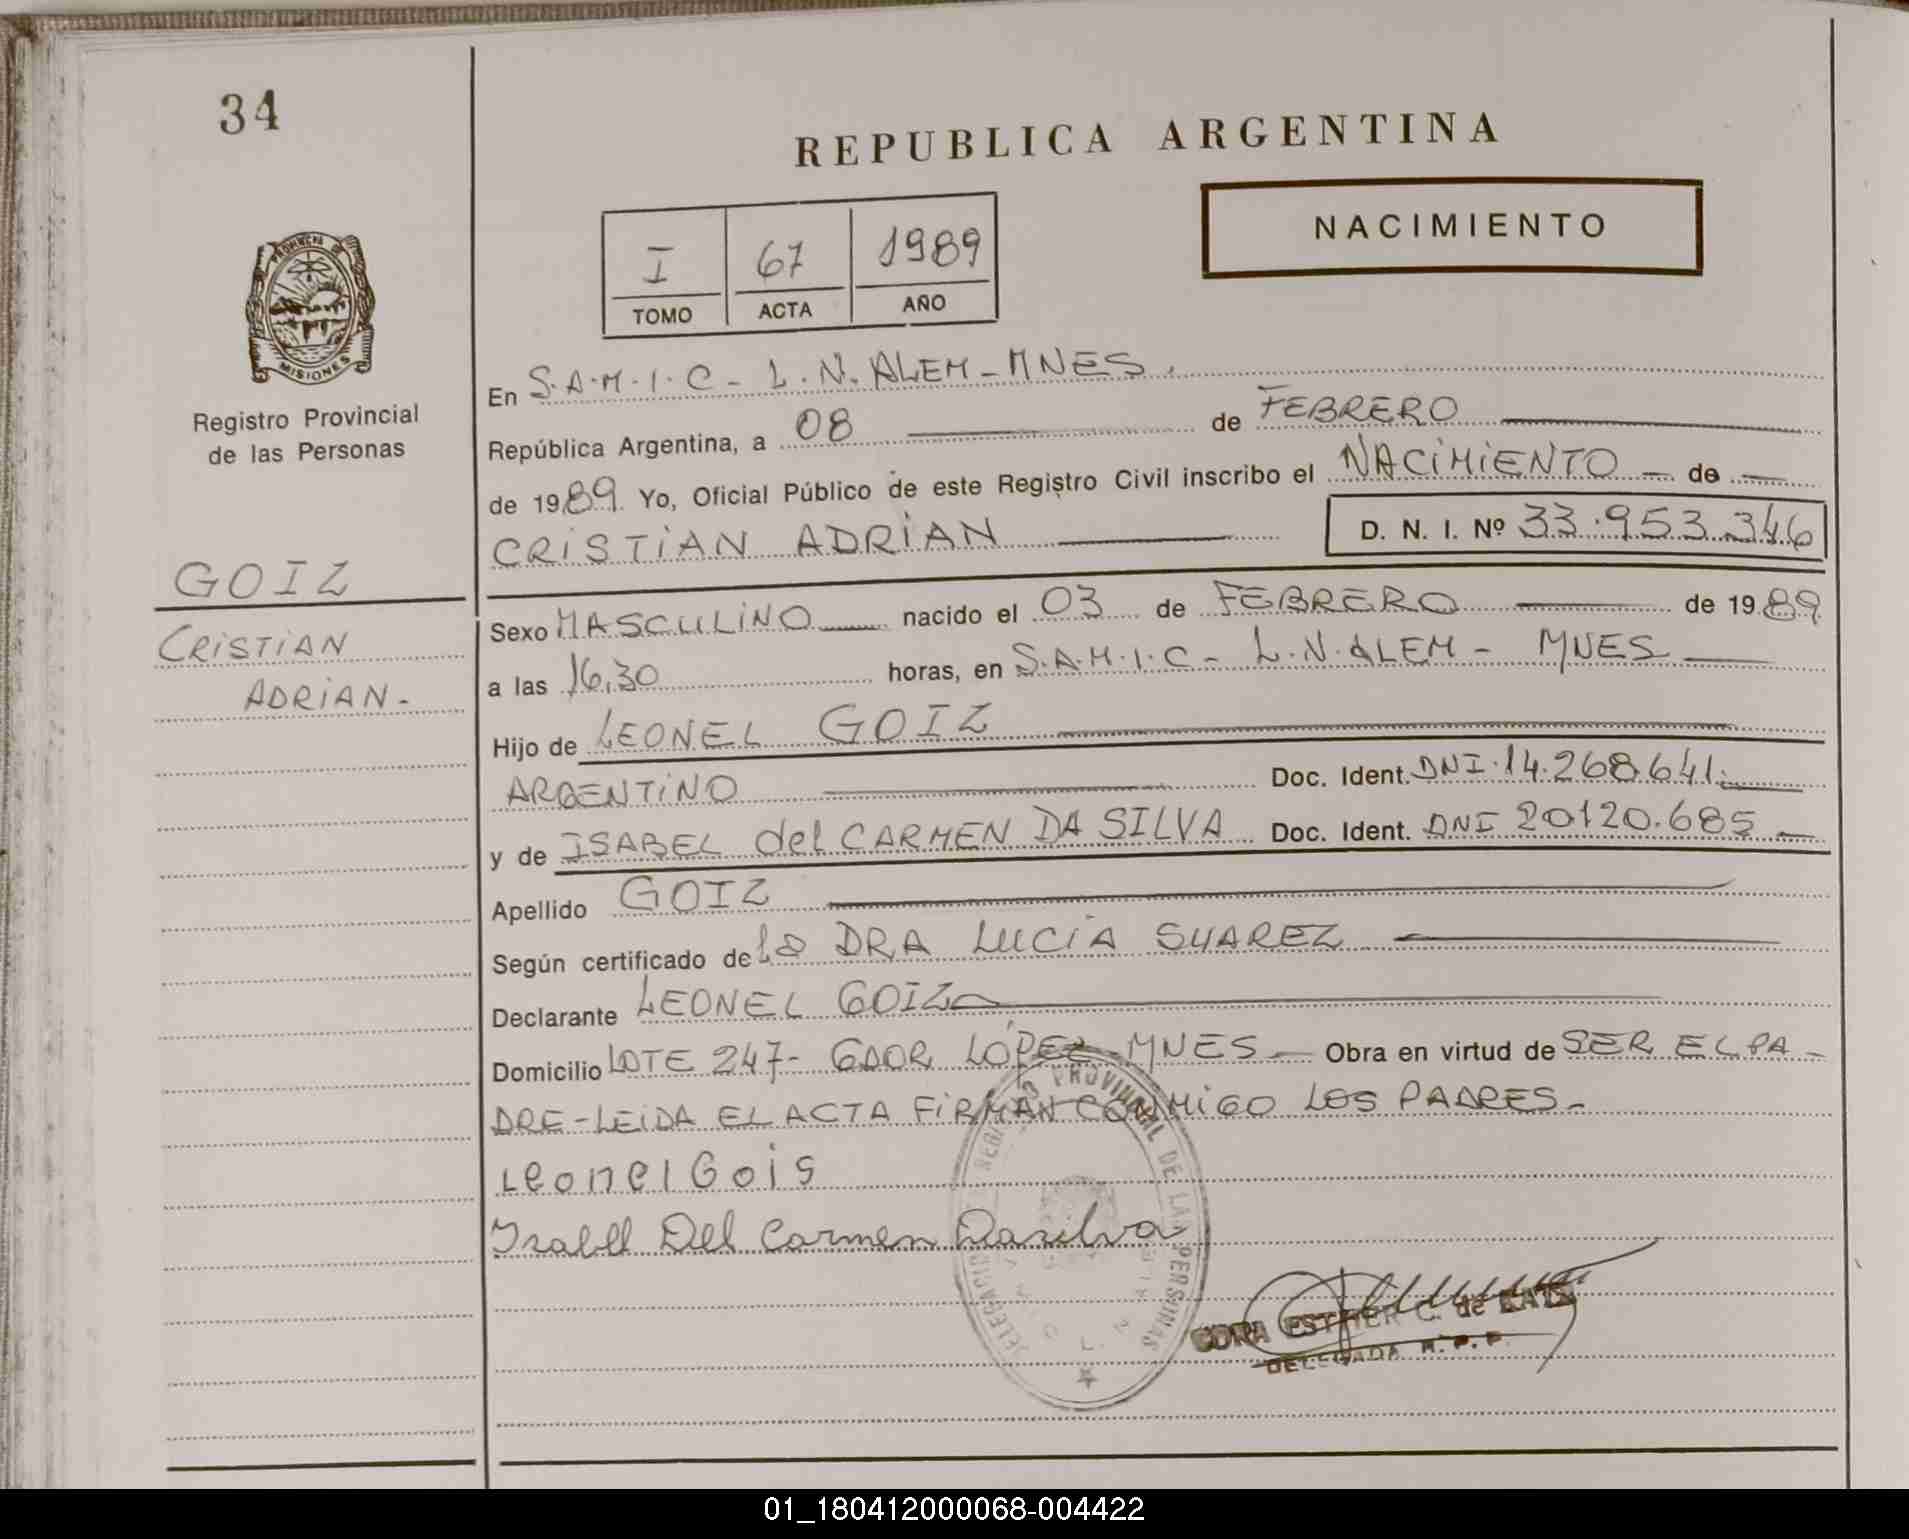 34
REPUBLICA ARGENTINA
NACIMIENTO
I 67 1989
TOMO ACTA AÑO
PROVINCIA
MISIONES
Registro Provincial
de las Personas
GOIZ
CRISTIAN
ADRIAN-
En S.A.M.I.C- L.N.ALEM-MNES.
República Argentina, a 08 de FEBRERO
de 1989 Yo, Oficial Público de este Registro Civil inscribo el NACIMIENTO - de
CRISTIAN ADRIAN D. N. I. Nº 33.953.346
Sexo MASCULINO nacido el 03 de FEBRERO de 1989
a las 16,30 horas, en S.A.M.I.C- L.N.ALEM - MNES
Hijo de LEONEL GOIZ
ARGENTINO Doc. Ident. DNI.14.268.641.
y de ISABEL del CARMEN DA SILVA Doc. Ident. DNI 20120.685
Apellido GOIZ
Según certificado de La DRA LUCIA SUAREZ
Declarante LEONEL GOIZ
Domicilio LOTE 247- GDOR LÓPEZ-MNES Obra en virtud de SER EL PA-
DRE-LEIDA EL ACTA FIRMAN CONMIGO LOS PADRES-
Leonel Gois
Isabell Del Carmen Dasilva
PROVINCIAL DE LAS PERSONAS
CORA ESTHER C. de
DELEGADA R. P. P.
01_180412000068-004422